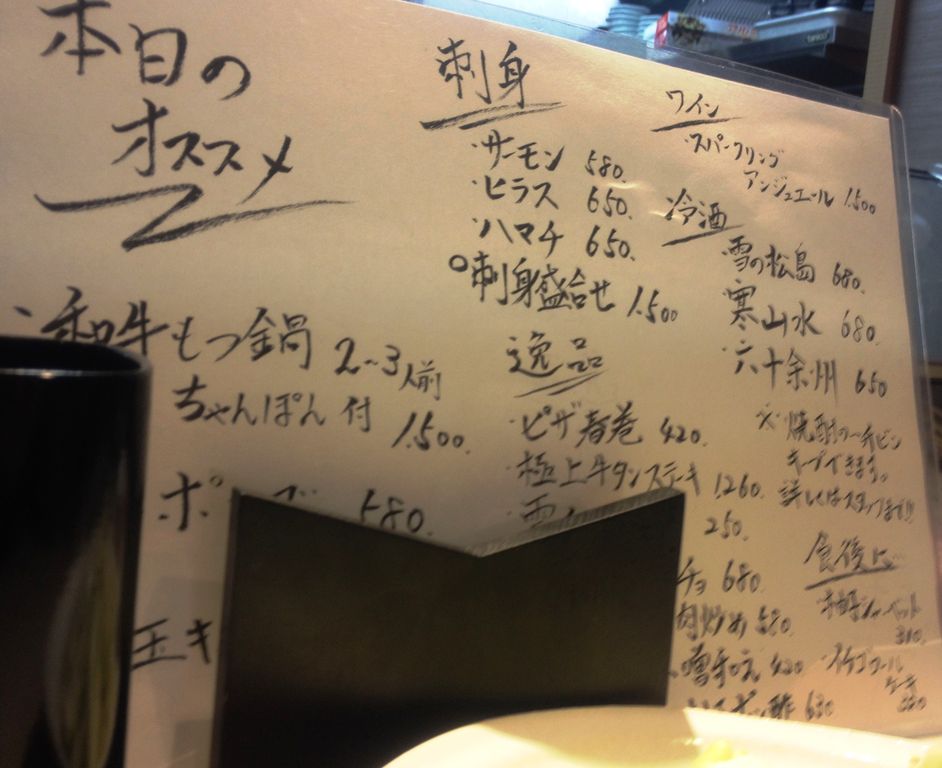 本日の
オススメ
・和牛もつ鍋 2〜3人前
ちゃんぽん付 1.500.
ポ 580.
玉キ
刺身
・サーモン 580.
・ヒラス 650.
・ハマチ 650.
○刺身盛合せ 1.500
逸品
・ピザ春巻 420.
・極上牛タンステーキ 1.260.
雪
250.
チョ 680.
肉炒め 580.
噌和え 420.
ポン酢 630
ワイン
・スパークリング
アンジュエール 1.500
冷酒
・雪の松島 680.
・寒山水 680.
・六十余州 650
※焼酎の一升ビン
キープできます。
詳しくはスタッフまで!!
食後に…
・柚子シャーベット
310.
・イチゴロール
ケーキ